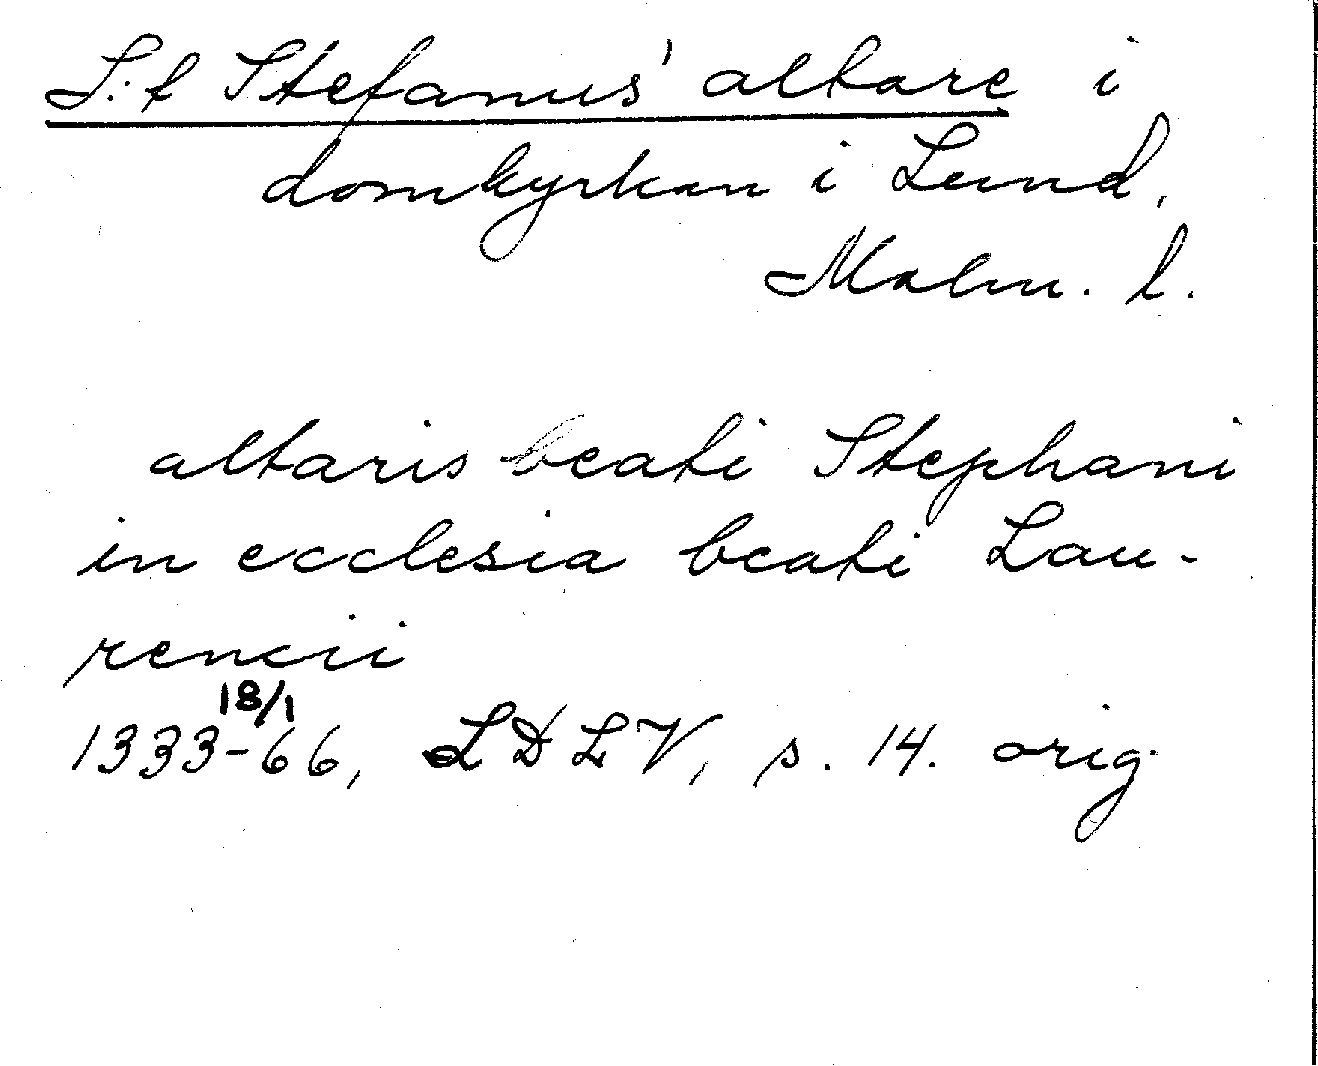 S:t Stefanus' altare i
domkyrkan i Lund,
Malm. l.
altaris beati Stephani
in ecclesia beati Lau-
rencii
18/1
1333-66, LDLV, s. 14. orig.